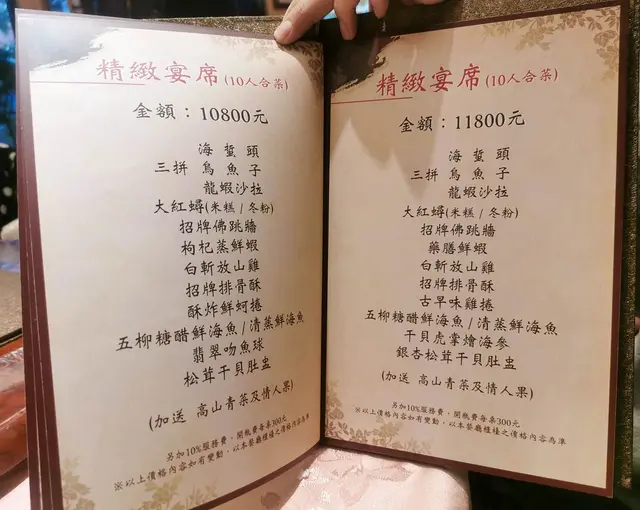 精緻宴席(10人合菜)
金額：10800元
海蜇頭
三拼 烏魚子
龍蝦沙拉
大紅蟳(米糕/冬粉)
招牌佛跳牆
枸杞蒸鮮蝦
白斬放山雞
招牌排骨酥
酥炸鮮蚵捲
五柳糖醋鮮海魚/清蒸鮮海魚
翡翠吻魚球
松茸干貝肚盅
(加送 高山青菜及情人果)
另加10%服務費，開瓶費每桌300元
※以上價格內容如有變動，以本餐廳櫃檯之價格內容為準
精緻宴席(10人合菜)
金額：11800元
海蜇頭
三拼 烏魚子
龍蝦沙拉
大紅蟳(米糕/冬粉)
招牌佛跳牆
藥膳鮮蝦
白斬放山雞
招牌排骨酥
古早味雞捲
五柳糖醋鮮海魚/清蒸鮮海魚
干貝虎掌燴海參
銀杏松茸干貝肚盅
(加送 高山青菜及情人果)
另加10%服務費，開瓶費每桌300元
※以上價格內容如有變動，以本餐廳櫃檯之價格內容為準